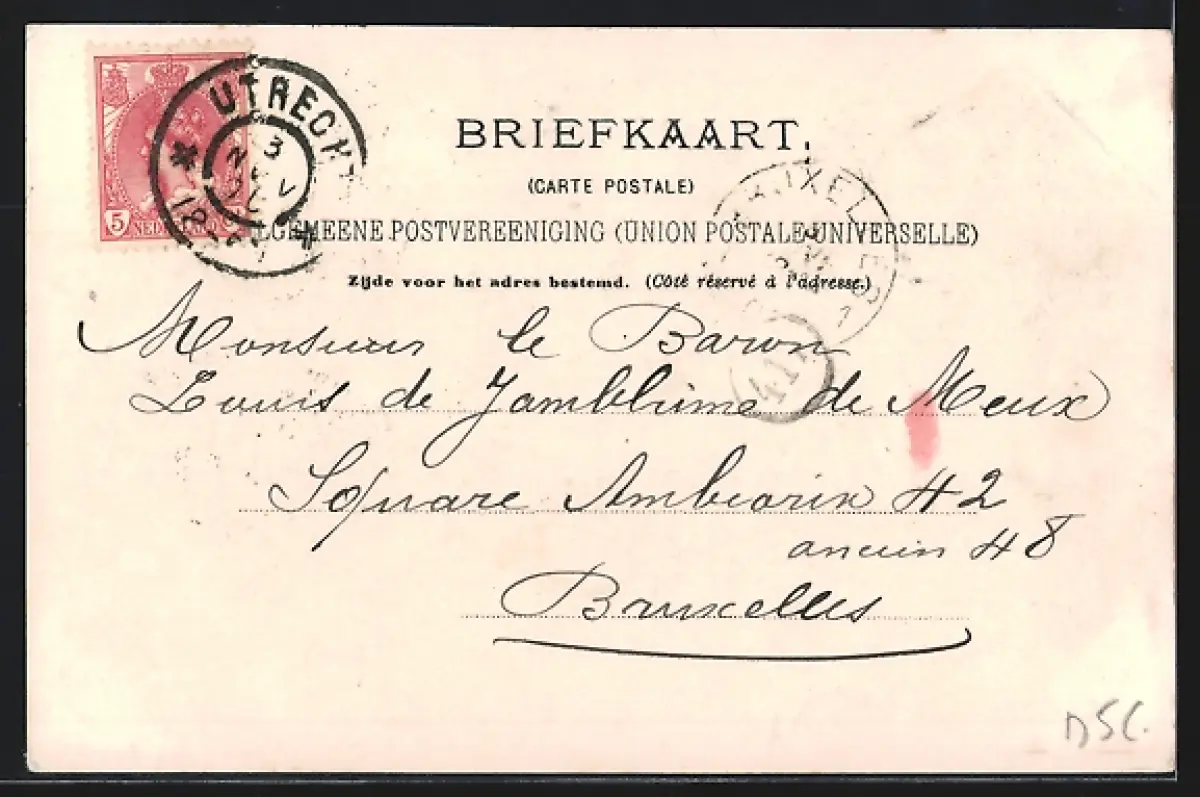 UTRECHT
5 NEDERLAND
BRIEFKAART.
(CARTE POSTALE)
ALGEMEENE POSTVEREENIGING (UNION POSTALE UNIVERSELLE)
Zijde voor het adres bestemd. (Côté réservé à l'adresse.)
Monsieur le Baron
Louis de Jamblinne de Meux
Square Ambiorix 42
ancien 48
Bruxelles
DSC.